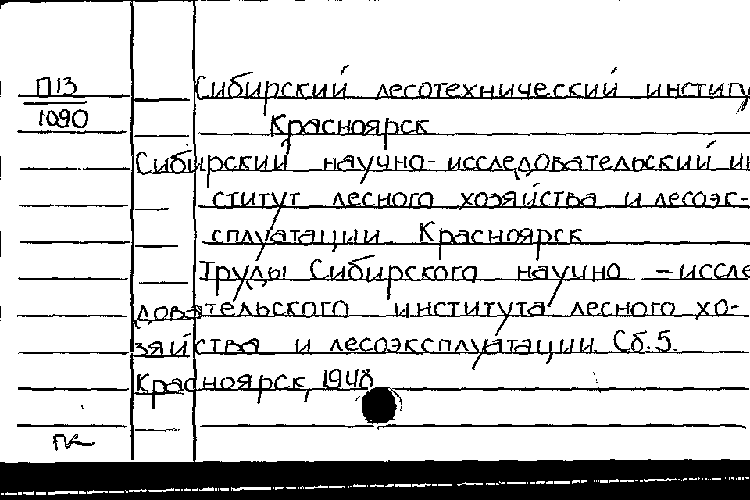 П13
1090
Сибирский лесотехнический институ
Красноярск
Сибирский научно-исследовательский ин
ститут лесного хозяйства и лесоэк-
сплуатации Красноярск
Труды Сибирского научно-иссле
довательского института лесного хо-
зяйства и лесоэксплуатации. Сб.5.
Красноярск, 1948